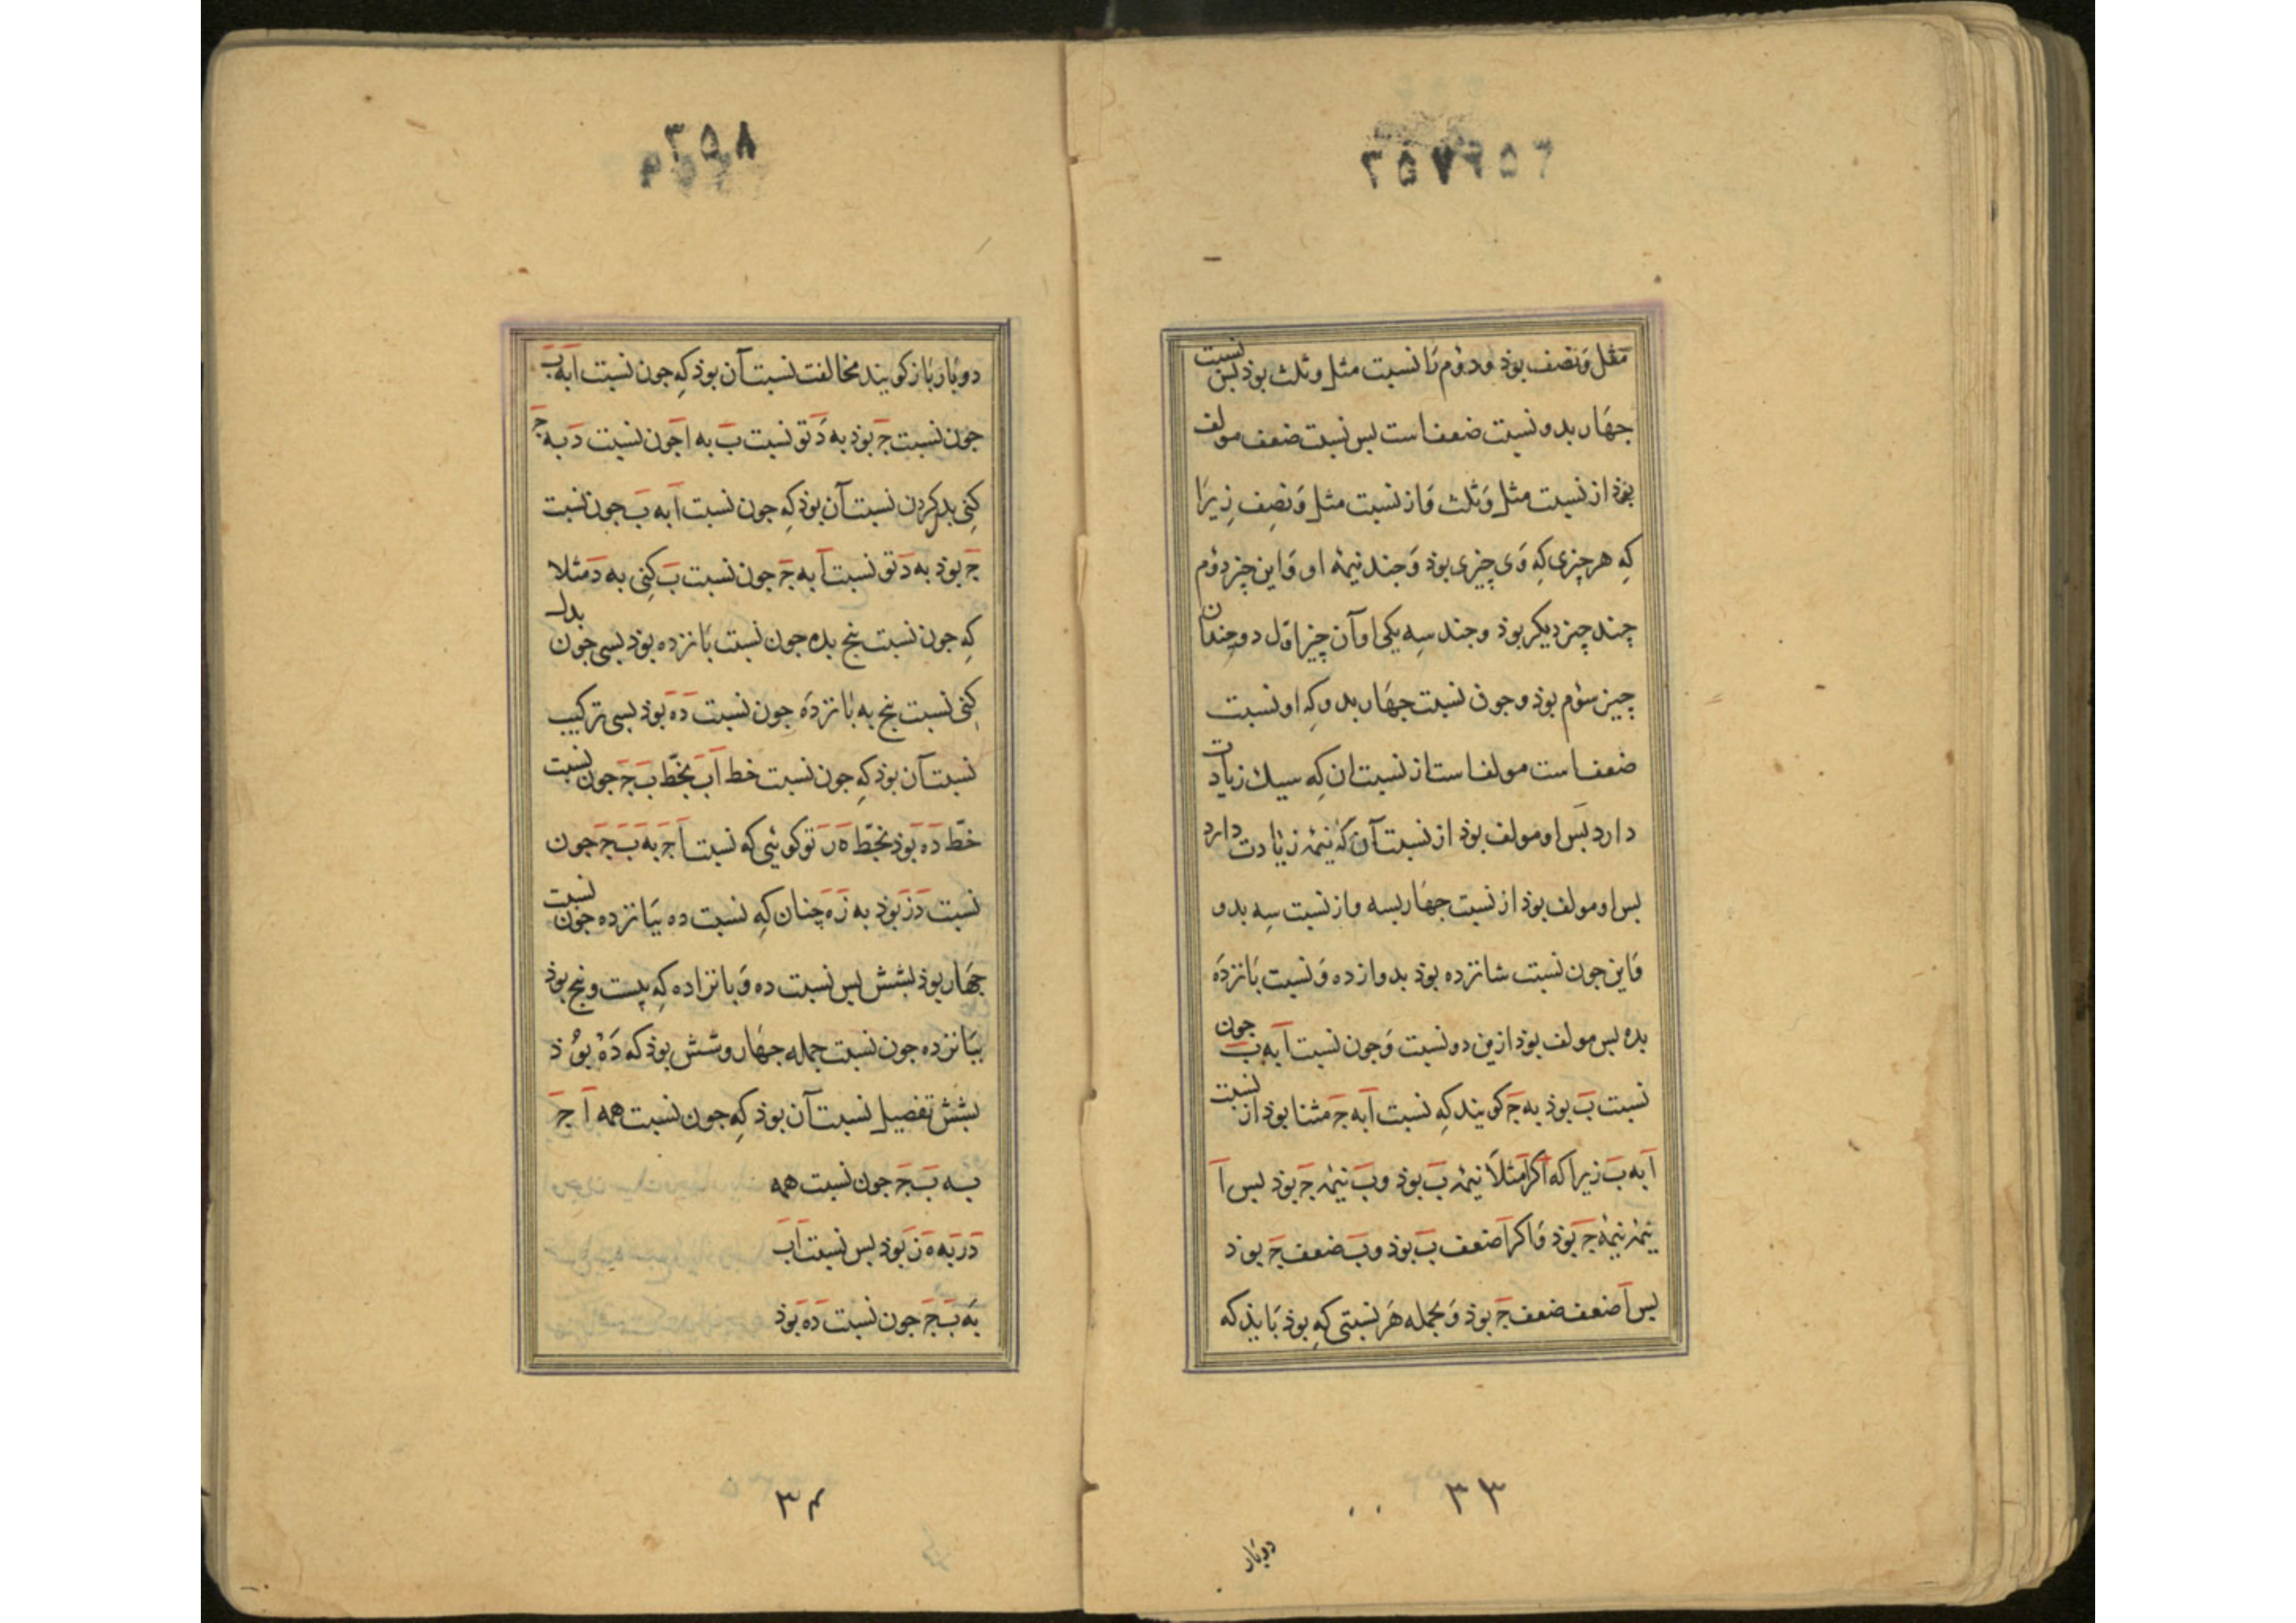 ۲۵۷۲۵۶
مثل وَنصف بوذ ودوُم رَا نسبت مثل وثلث بوذ بس نسبت
جهَار بدو نسبت ضعف است بس نسبت ضعف مولف
بوَذ از نسبت مثل وَثلث وَاز نسبت مثل وَنصِف زِیرَا
کِه هر چیزی کِه وَی چیزی بوذ وَجند نیمهٔ او وَاین چیز دوُم
چند چیز دیکر بوذ وجند سِه یکی او آن چیز اوّل دو چندان
چیز سوُم بوذ وجون نسبت جهَار بدو کِه او نسبت
ضعف است مولف است از نسبت ان کِه سیك زیادت
دارد بَس او مولف بوذ از نسبت آن کهٔ نیمهٔ زیَادت دارد
بس او مولف بوذ از نسبت جهَار بسه واز نسبت سِه بدو
وَاین جون نسبت شانزده بوذ بدوازده وَنسبت بَانزدَه
بده بس مولف بوذ ازین دو نسبت وَجون نسبت آ به بَ جون
نسبت بَ بوذ به جَ کویند کِه نسبت آ به جَ مثنا بوذ از نسبت
آ به بَ زیرا که اکر آ مثلاً نیمهٔ بَ بوذ وبَ نیمهٔ جَ بوذ بس آ
نیمهٔ نیمهٔ جَ بوَذ وَاکر آ ضعف بَ بوذ وبَ ضعف جَ بوذ
بس آ ضعف ضعف جَ بوذ وَبجمله هَر نسبتی کِه بوذ بَایذ که
۳۳
دوبَار
۳۵۸
دوبَار بَاز کویند مخالفت نسبت آن بوذ کِه جون نسبت آ به بَ
جون نسبت جَ بوذ به دَ تو نسبت بَ به آ جون نسبت دَ به جَ
کنِی بدل کردن نسبت آن بوذ کِه جون نسبت آ به بَ جون نسبت
جَ بوذ به دَ تو نسبت آ به جَ جون نسبت بَ کنِی به دَ مثلا
کِه جون نسبت پنج بده جون نسبت بَانزده بوذ بسی جون بدل
کنِی نسبت پنج به بَانزدَه جون نسبت دَه بوذ بسی ترکیب
نسبت آن بوذ کِه جون نسبت خط اَبَ بخطّ بَ جَ جون نسبت
خطّ دَه بوَذ بخطّ هَ رَ تو کوئیی که نسبت اَجَ به بَ جَ جون
نسبت دَزَ بوَذ به زَهَ چنان کِه نسبت ده بیَانزده جون نسبت
جهَار بوذ بشش بس نسبت ده وَبانزاده کِه بیست وپنج بوذ
ببَانزده جون نسبت جمله جهَار وشش بوذ که دَه بوُذ
بشش تفصیل نسبت آن بوذ کِه جون نسبت همه آ جَ
به بَ جَ جون نسبت همه
دَرَ به هَ زَ بوَذ بس نسبت اَبَ
به بَ جَ جون نسبت دَهَ بوَذ
۳۴